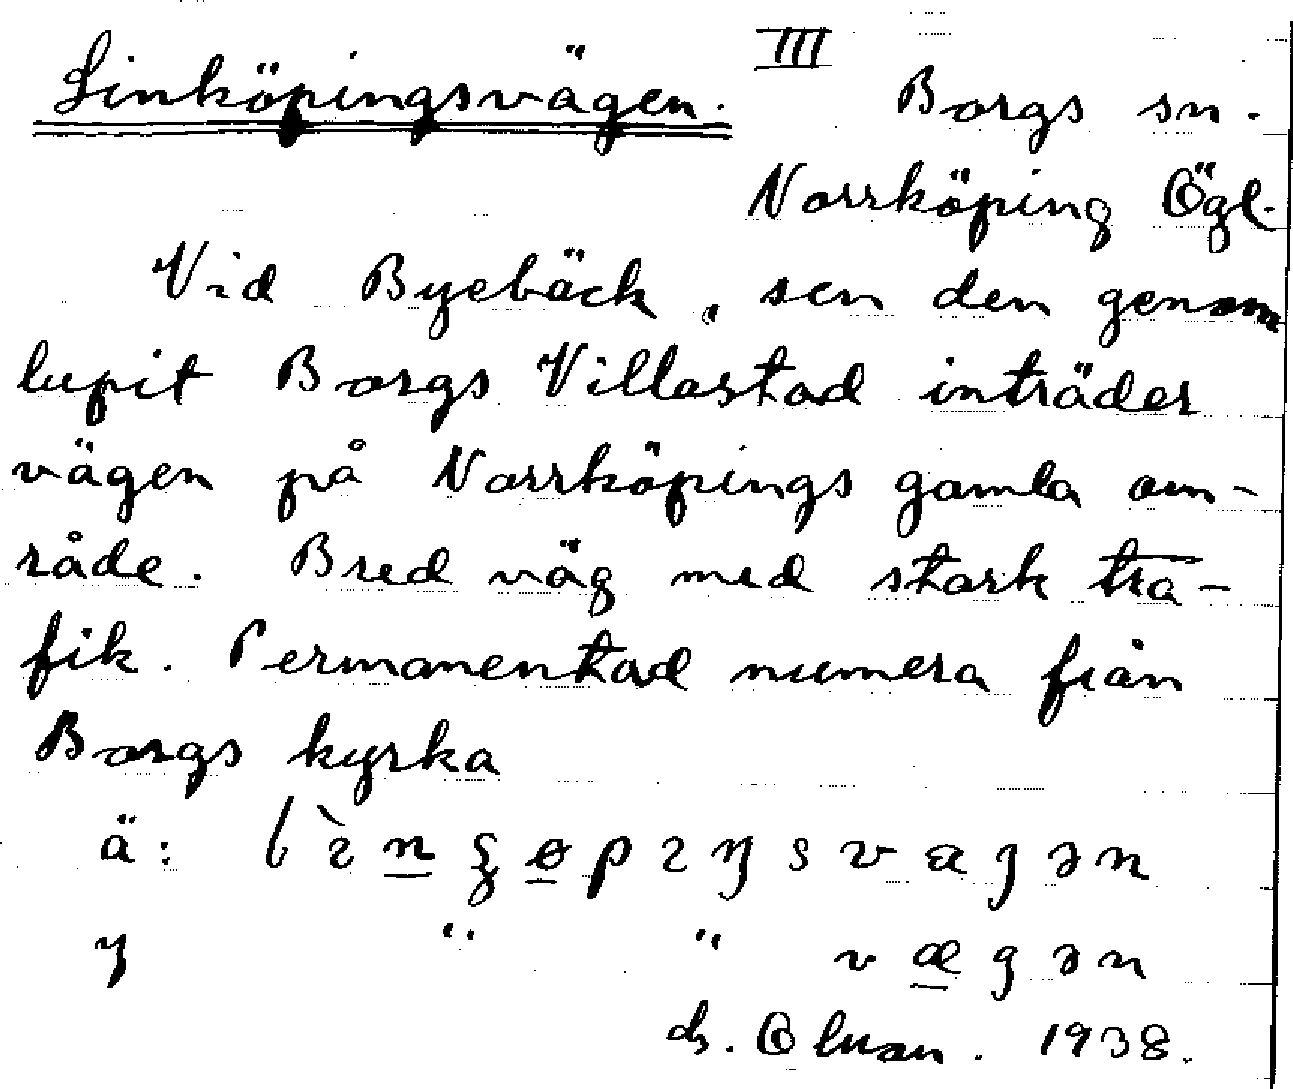 III
Linköpingsvägen.
Borgs sn.
Norrköping Ögl.
Vid Byebäck, sen den genom
lupit Borgs Villastad inträder
vägen på Norrköpings gamla om-
råde. Bred väg med stark tra-
fik. Permanentad numera från
Borgs kyrka
ä:
y " "
1938.